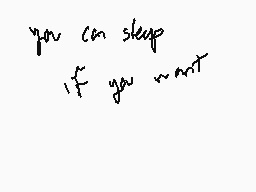 you can sleep
if you want